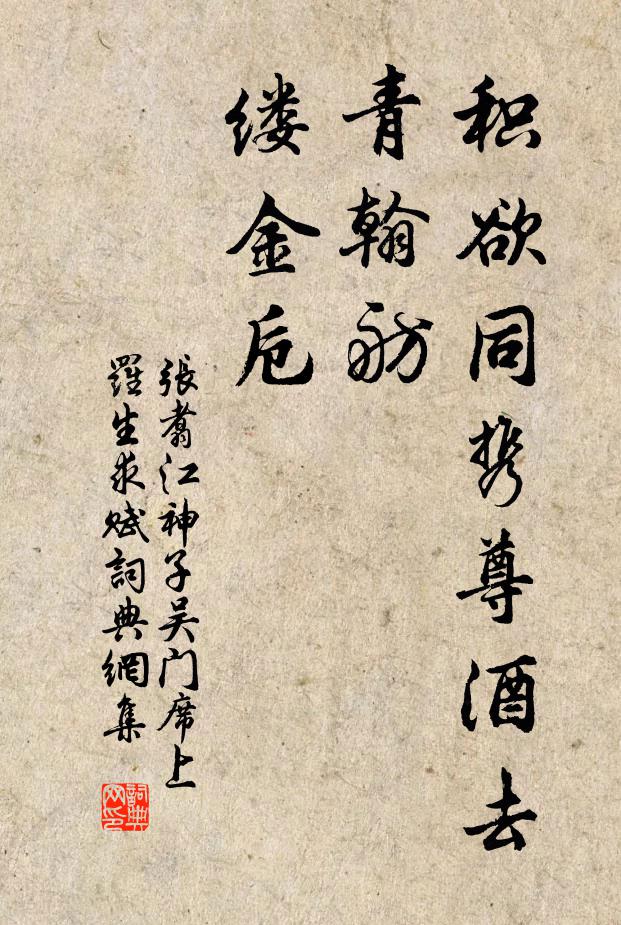 积欲同携尊酒去
青翰舫
缕金卮
張翥江神子吴门席上
羅生求赋詞典網集
詞典网印